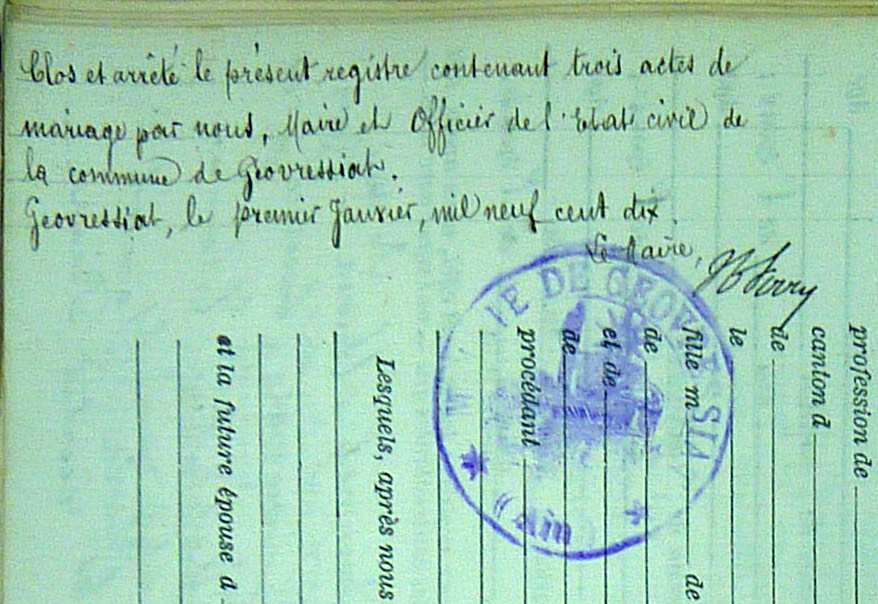 Clos et arrêté le présent registre contenant trois actes de
mariage par nous, Maire et Officier de l'Etat civil de
la commune de Geovressiat.
Geovressiat, le premier Janvier, mil neuf cent dix.
Le Maire,
MAIRIE DE GEOVRESSIAT
(Ain)
profession de
canton d
de
le
fille m de
de
et de
de
procédant
Lesquels, après nous
et la future épouse a